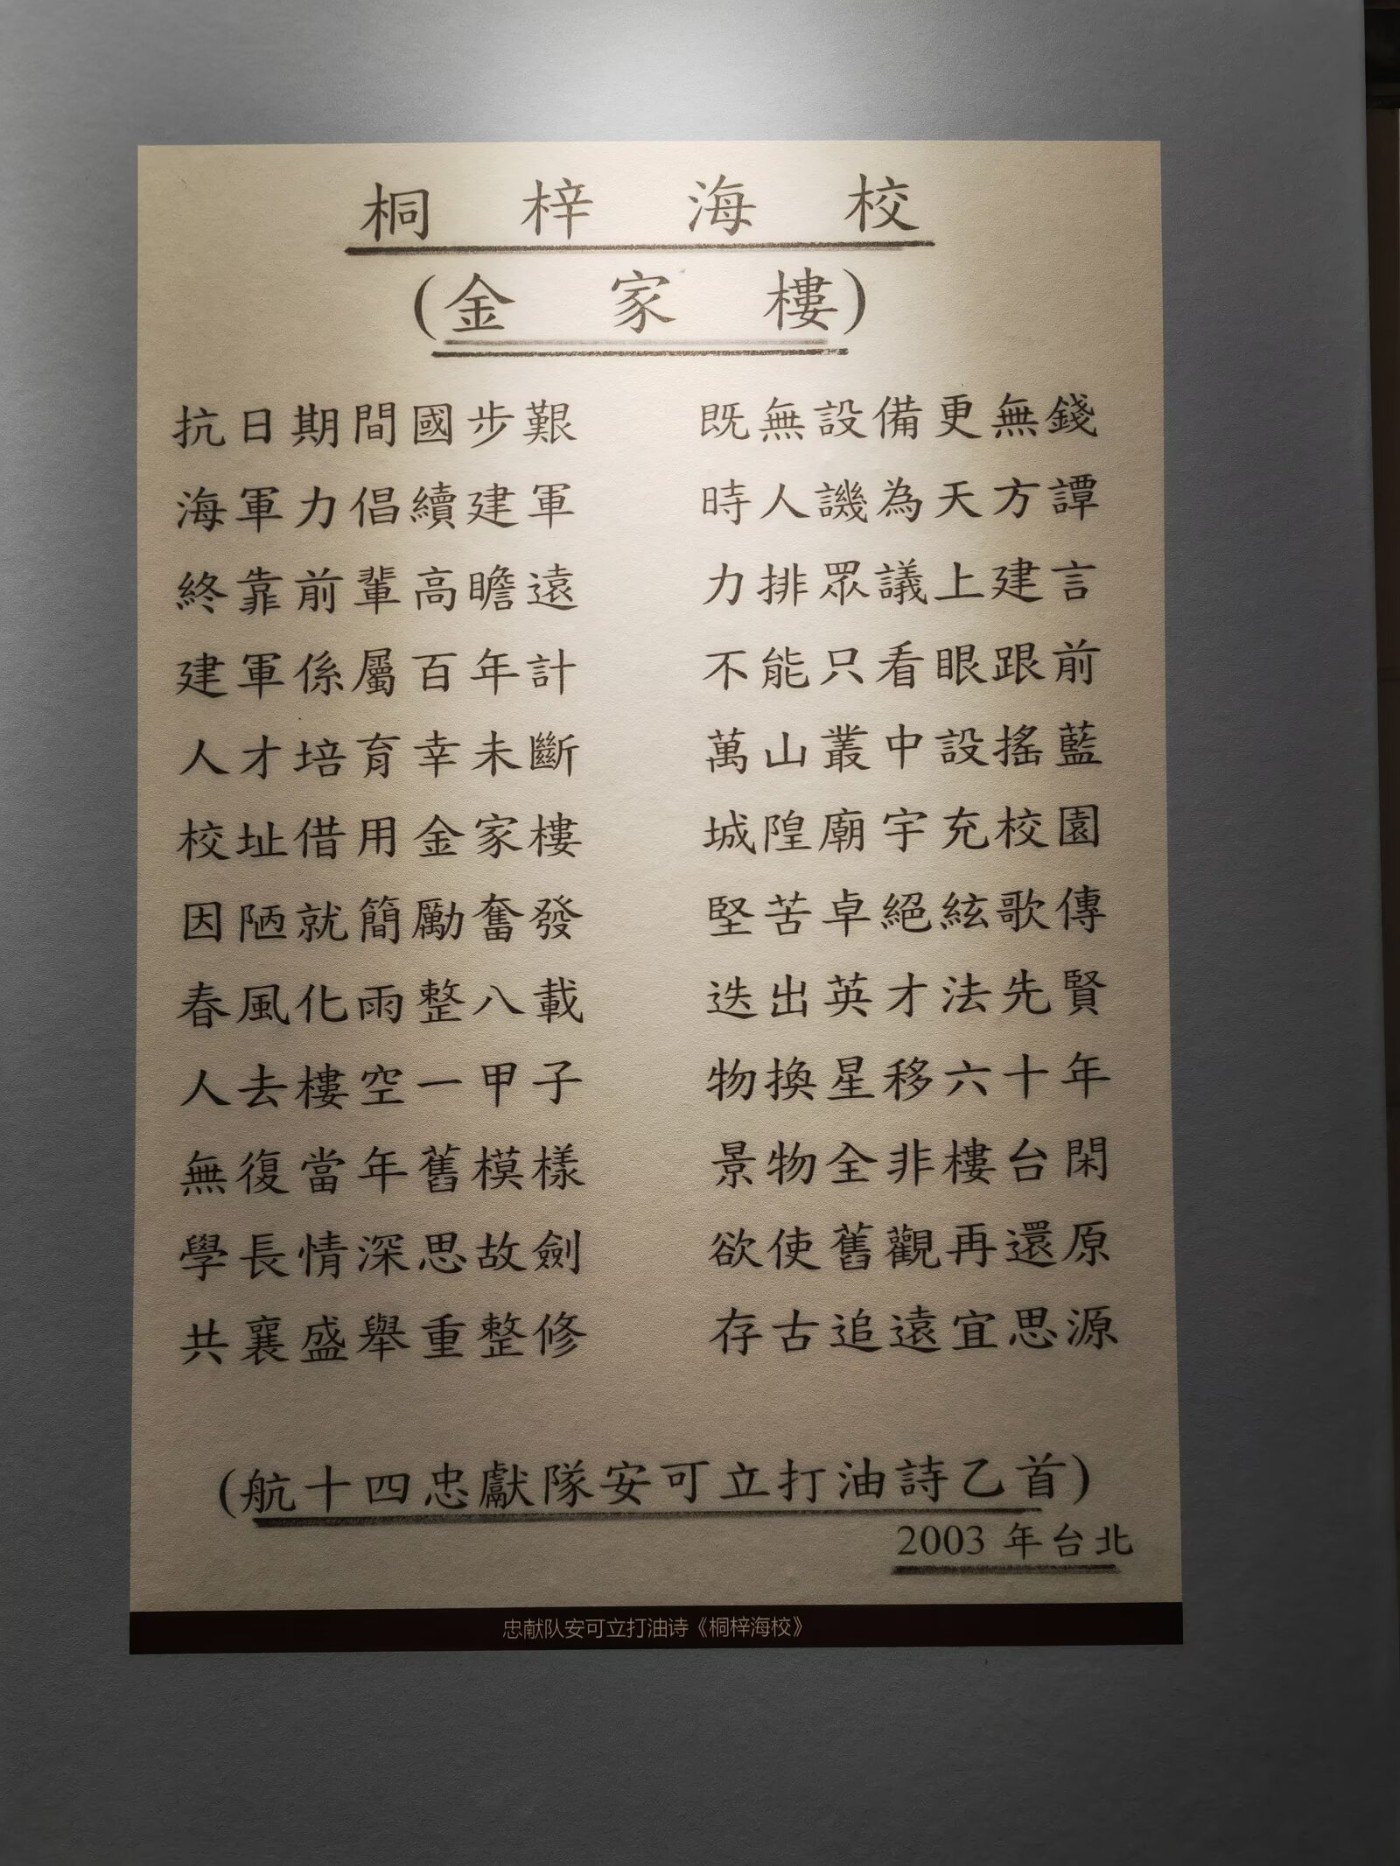 桐梓海校
(金家樓)
抗日期間國步艱 既無設備更無錢
海軍力倡續建軍 時人譏為天方譚
終靠前輩高瞻遠 力排眾議上建言
建軍係屬百年計 不能只看眼跟前
人才培育幸未斷 萬山叢中設搖藍
校址借用金家樓 城隍廟宇充校園
因陋就簡勵奮發 堅苦卓絕絃歌傳
春風化雨整八載 迭出英才法先賢
人去樓空一甲子 物換星移六十年
無復當年舊模樣 景物全非樓台閑
學長情深思故劍 欲使舊觀再還原
共襄盛舉重整修 存古追遠宜思源
(航十四忠獻隊安可立打油詩乙首)
2003 年台北
忠献队安可立打油诗《桐梓海校》